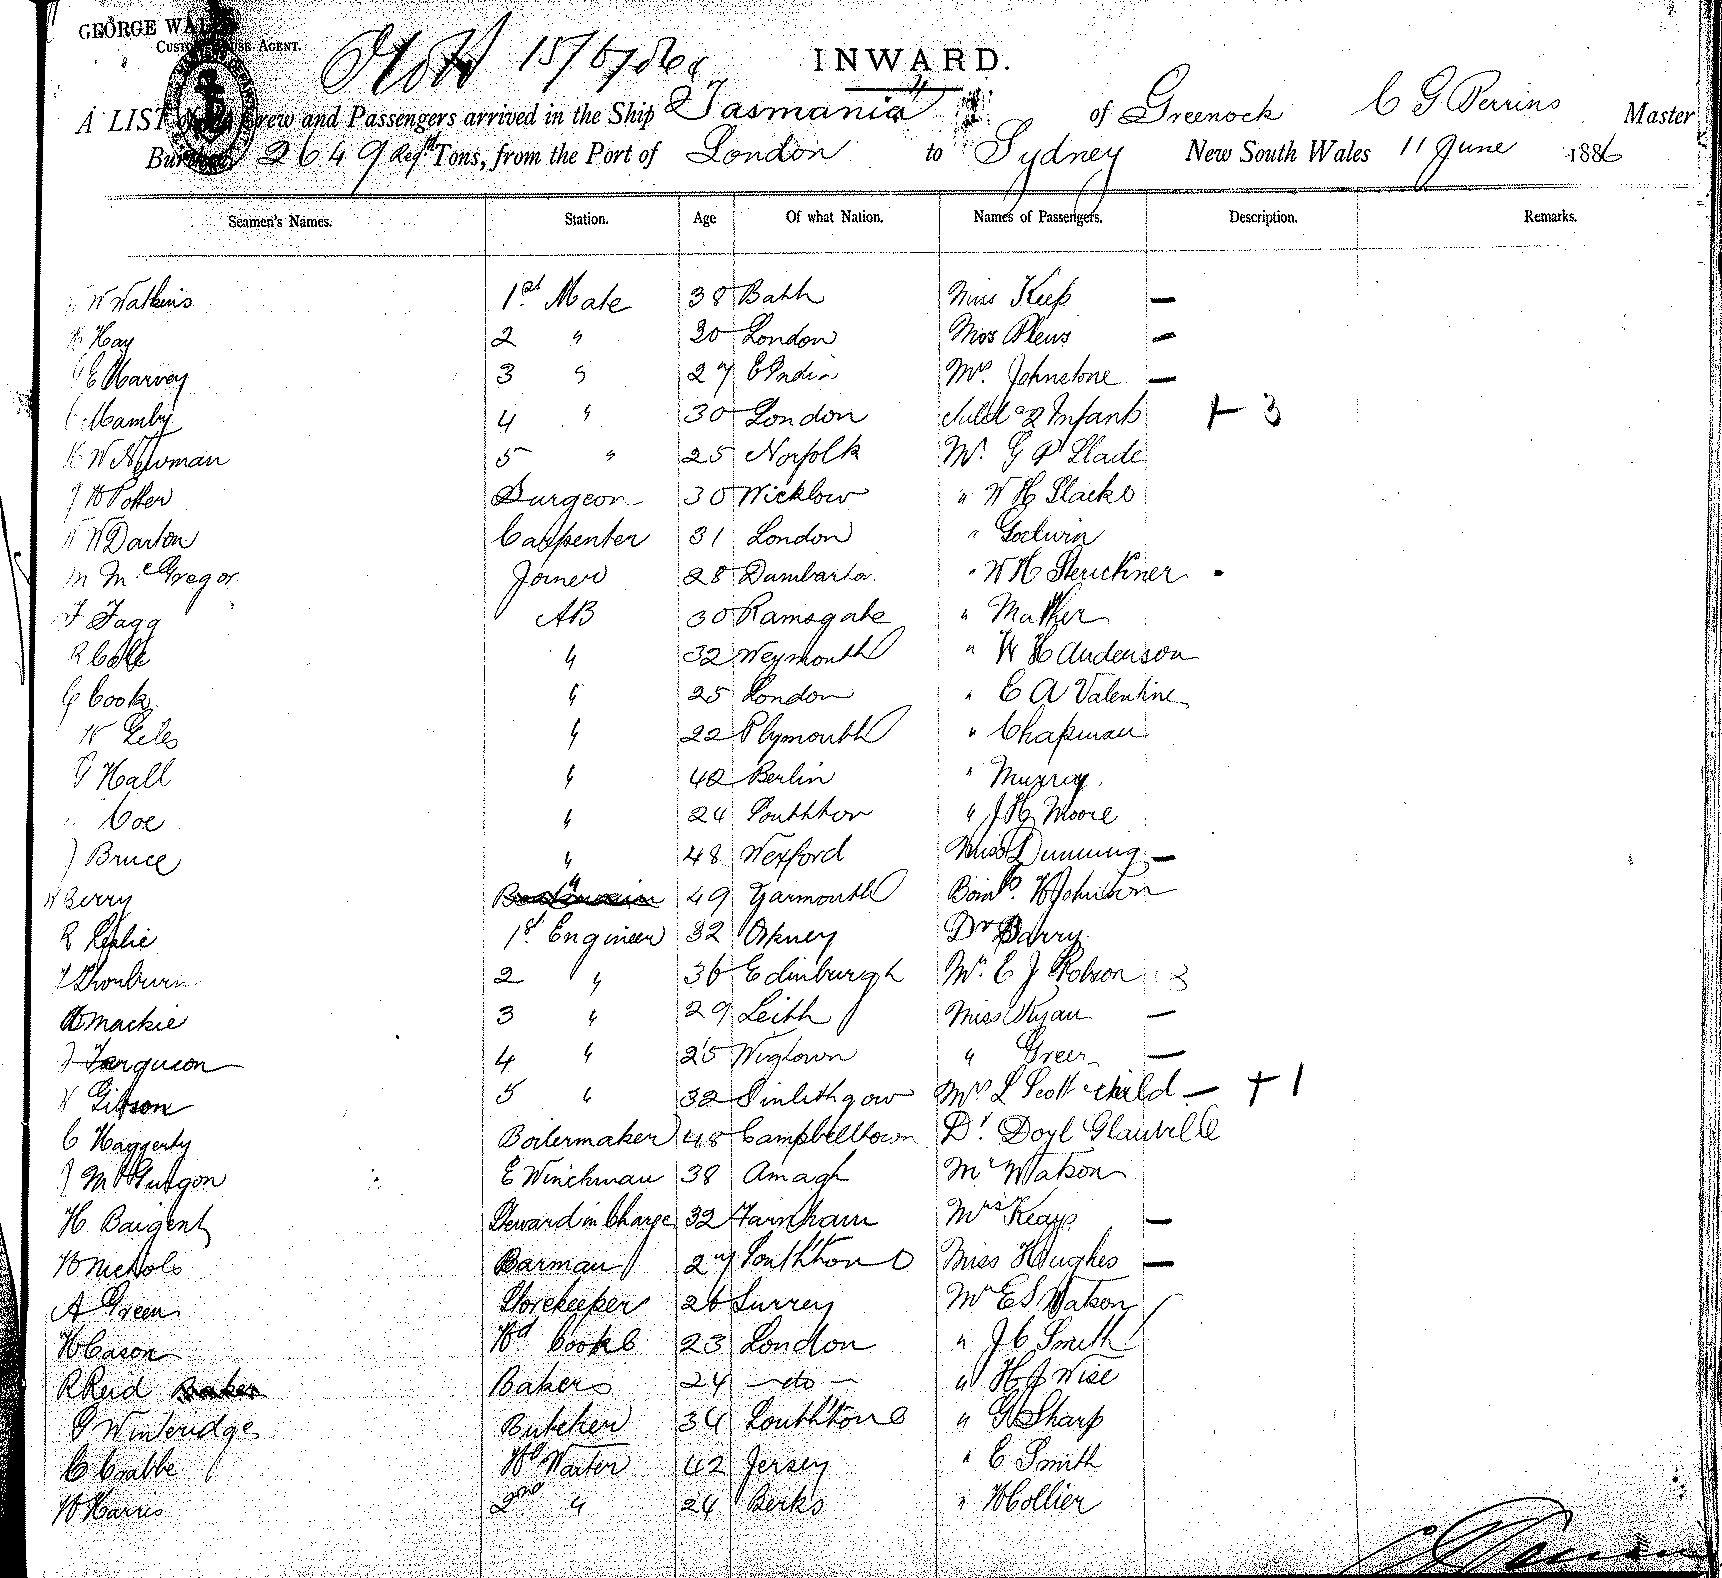 GEORGE WALKER
CUSTOM HOUSE AGENT.
15/6/86
INWARD.
A LIST of the Crew and Passengers arrived in the Ship Tasmania of Greenock C G Perrins Master
Burthen 2649 Regd Tons, from the Port of London to Sydney New South Wales 11 June 1886
Seamen's Names. Station. Age Of what Nation. Names of Passengers. Description. Remarks.
W Watkins 1st Mate 38 Bath Miss Keep —
Hay 2 " 30 London —
E Harvey 3 " 27 E India Mrs. Johnstone —
Mamby 4 " 30 London Child & Infant + 3
W Newman 5 " 25 Norfolk Mr. G P Slade
J H Potter Surgeon 30 Wicklow " W H Slacke
W Darton Carpenter 31 London " Godwin
M McGregor Joiner 28 Dumbarton " W H
F Fagg AB 30 Ramsgate " Mather
R Cole " 32 Weymouth " W H Anderson
G Cook " 25 London " E A Valentine
W Giles " 22 Plymouth " Chapman
G Hall " 42 Berlin " Murray
Coe " 24 Southton " J H Moore
J Bruce " 48 Wexford Miss Dunning —
W Berry " 49 Yarmouth H Johnston
R Leslie 1st Engineer 32 Orkney Dr Barry
Shonburn 2 " 36 Edinburgh Mr. E J Robson
Mackie 3 " 29 Leith Miss Ryan —
J Ferguson 4 " 25 Wigtown " Greer —
W Gibson 5 " 32 Linlithgow Mrs L Scott & child — + 1
C Haggerty Boilermaker 48 Campbelltown Dr. Doyl Glanville
J E Winchman 38 Amagh Mr Watson
H. Bargent Steward in Charge 32 Farnham Mrs Keays —
W Nichols Barman 27 Southton Miss Hughes —
A Green Storekeeper 26 Surrey Mr E S Watson
H Cason Hd Cook 23 London " J C Smith
R Reid Baker 24 — do — " H J Wise
G Winteridge Butcher 34 Southton " G Sharp
C Coubbe Hd Waiter 42 Jersey " E Smith
W Harris 2nd " 24 Berks " Hollier